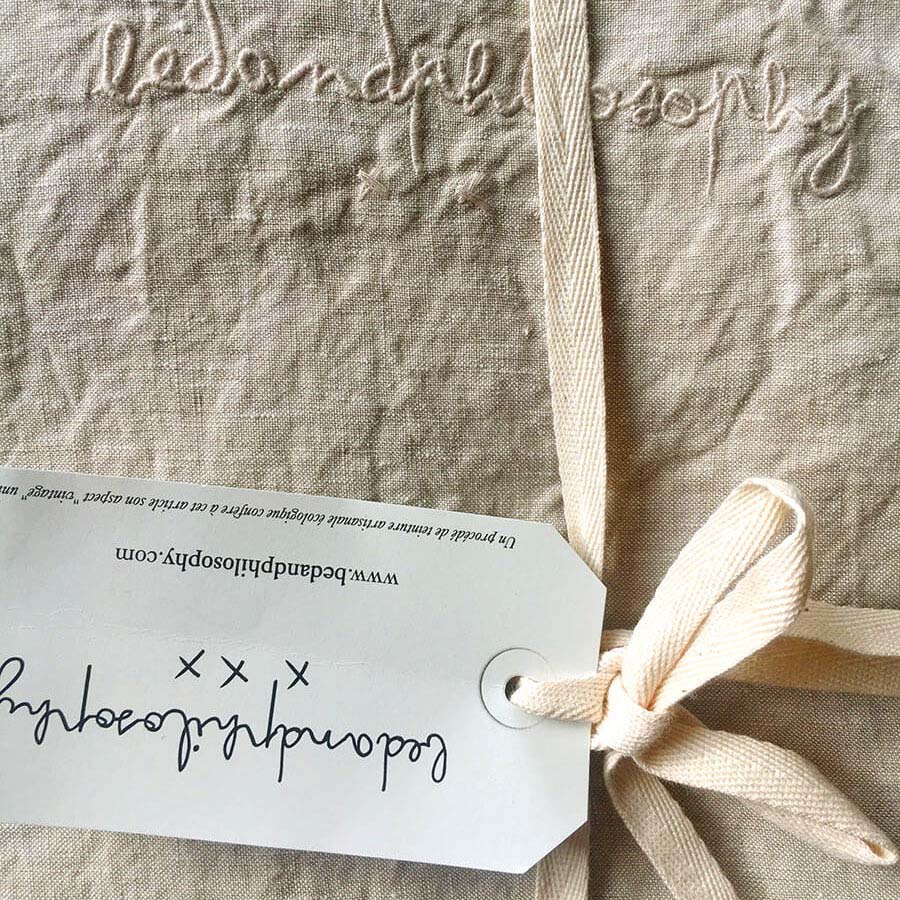 bedandphilosophy
x x
bedandphilosophy
x x x
www.bedandphilosophy.com
Un procédé de teinture artisanale écologique confère à cet article son aspect "vintage"